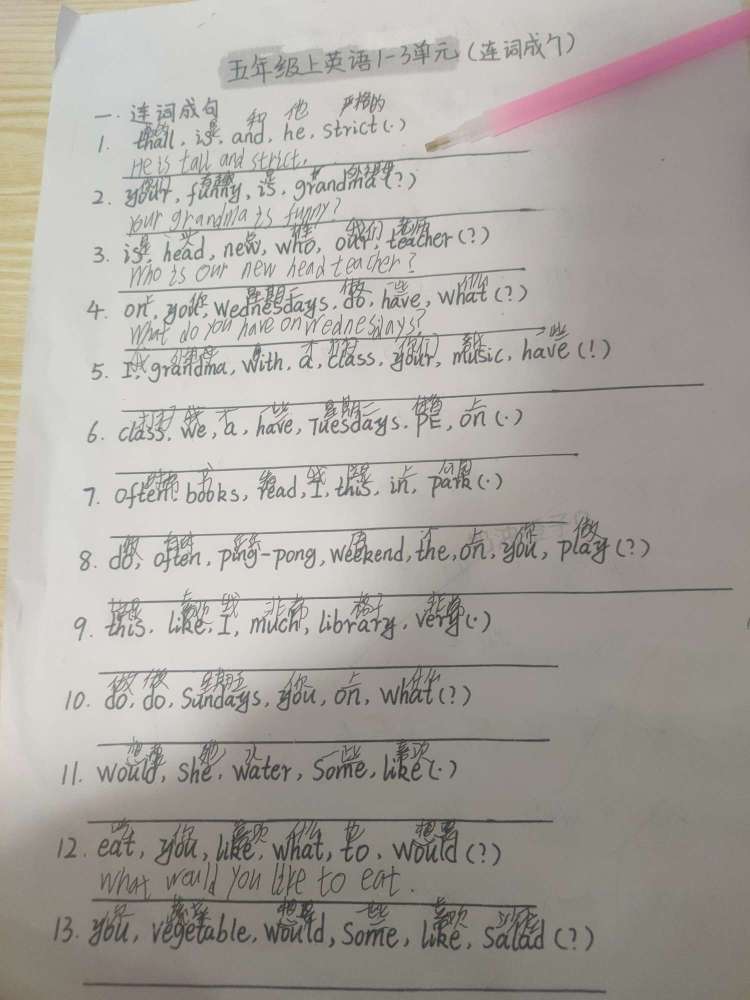 五年级上英语1-3单元(连词成句)
一.连词成句
和 他 严格的
1. thall, is, and, he, strict(.)
He is tall and strict.
2. your, funny, is, grandma(?)
Your grandma is funny?
是 头 新 谁 我们 老师
3. is, head, new, who, our, teacher(?)
Who is our new head teacher?
上 你 星期三 做 一些 什么
4. on, you, Wednesdays, do, have, what(?)
What do you have on Wednesdays?
5. I, grandma, with, a, class, your, music, have(!)
我 一些 星期二 上
6. class, we, a, have, Tuesdays, PE, on(.)
书 我 公园
7. often, books, read, I, this, in, park(.)
乒乓 周 上 你
8. do, often, ping-pong, weekend, the, on, you, play(?)
喜欢 我 非常 非常
9. this, like, I, much, library, very(.)
做 做 你 上 什么
10. do, do, Sundays, you, on, what(?)
想要 她 水 一些 喜欢
11. would, she, water, some, like(.)
吃 你 喜欢 什么 想要
12. eat, you, like, what, to, would(?)
What would you like to eat.
你 蔬菜 想要 一些 喜欢 沙拉
13. you, vegetable, would, some, like, salad(?)